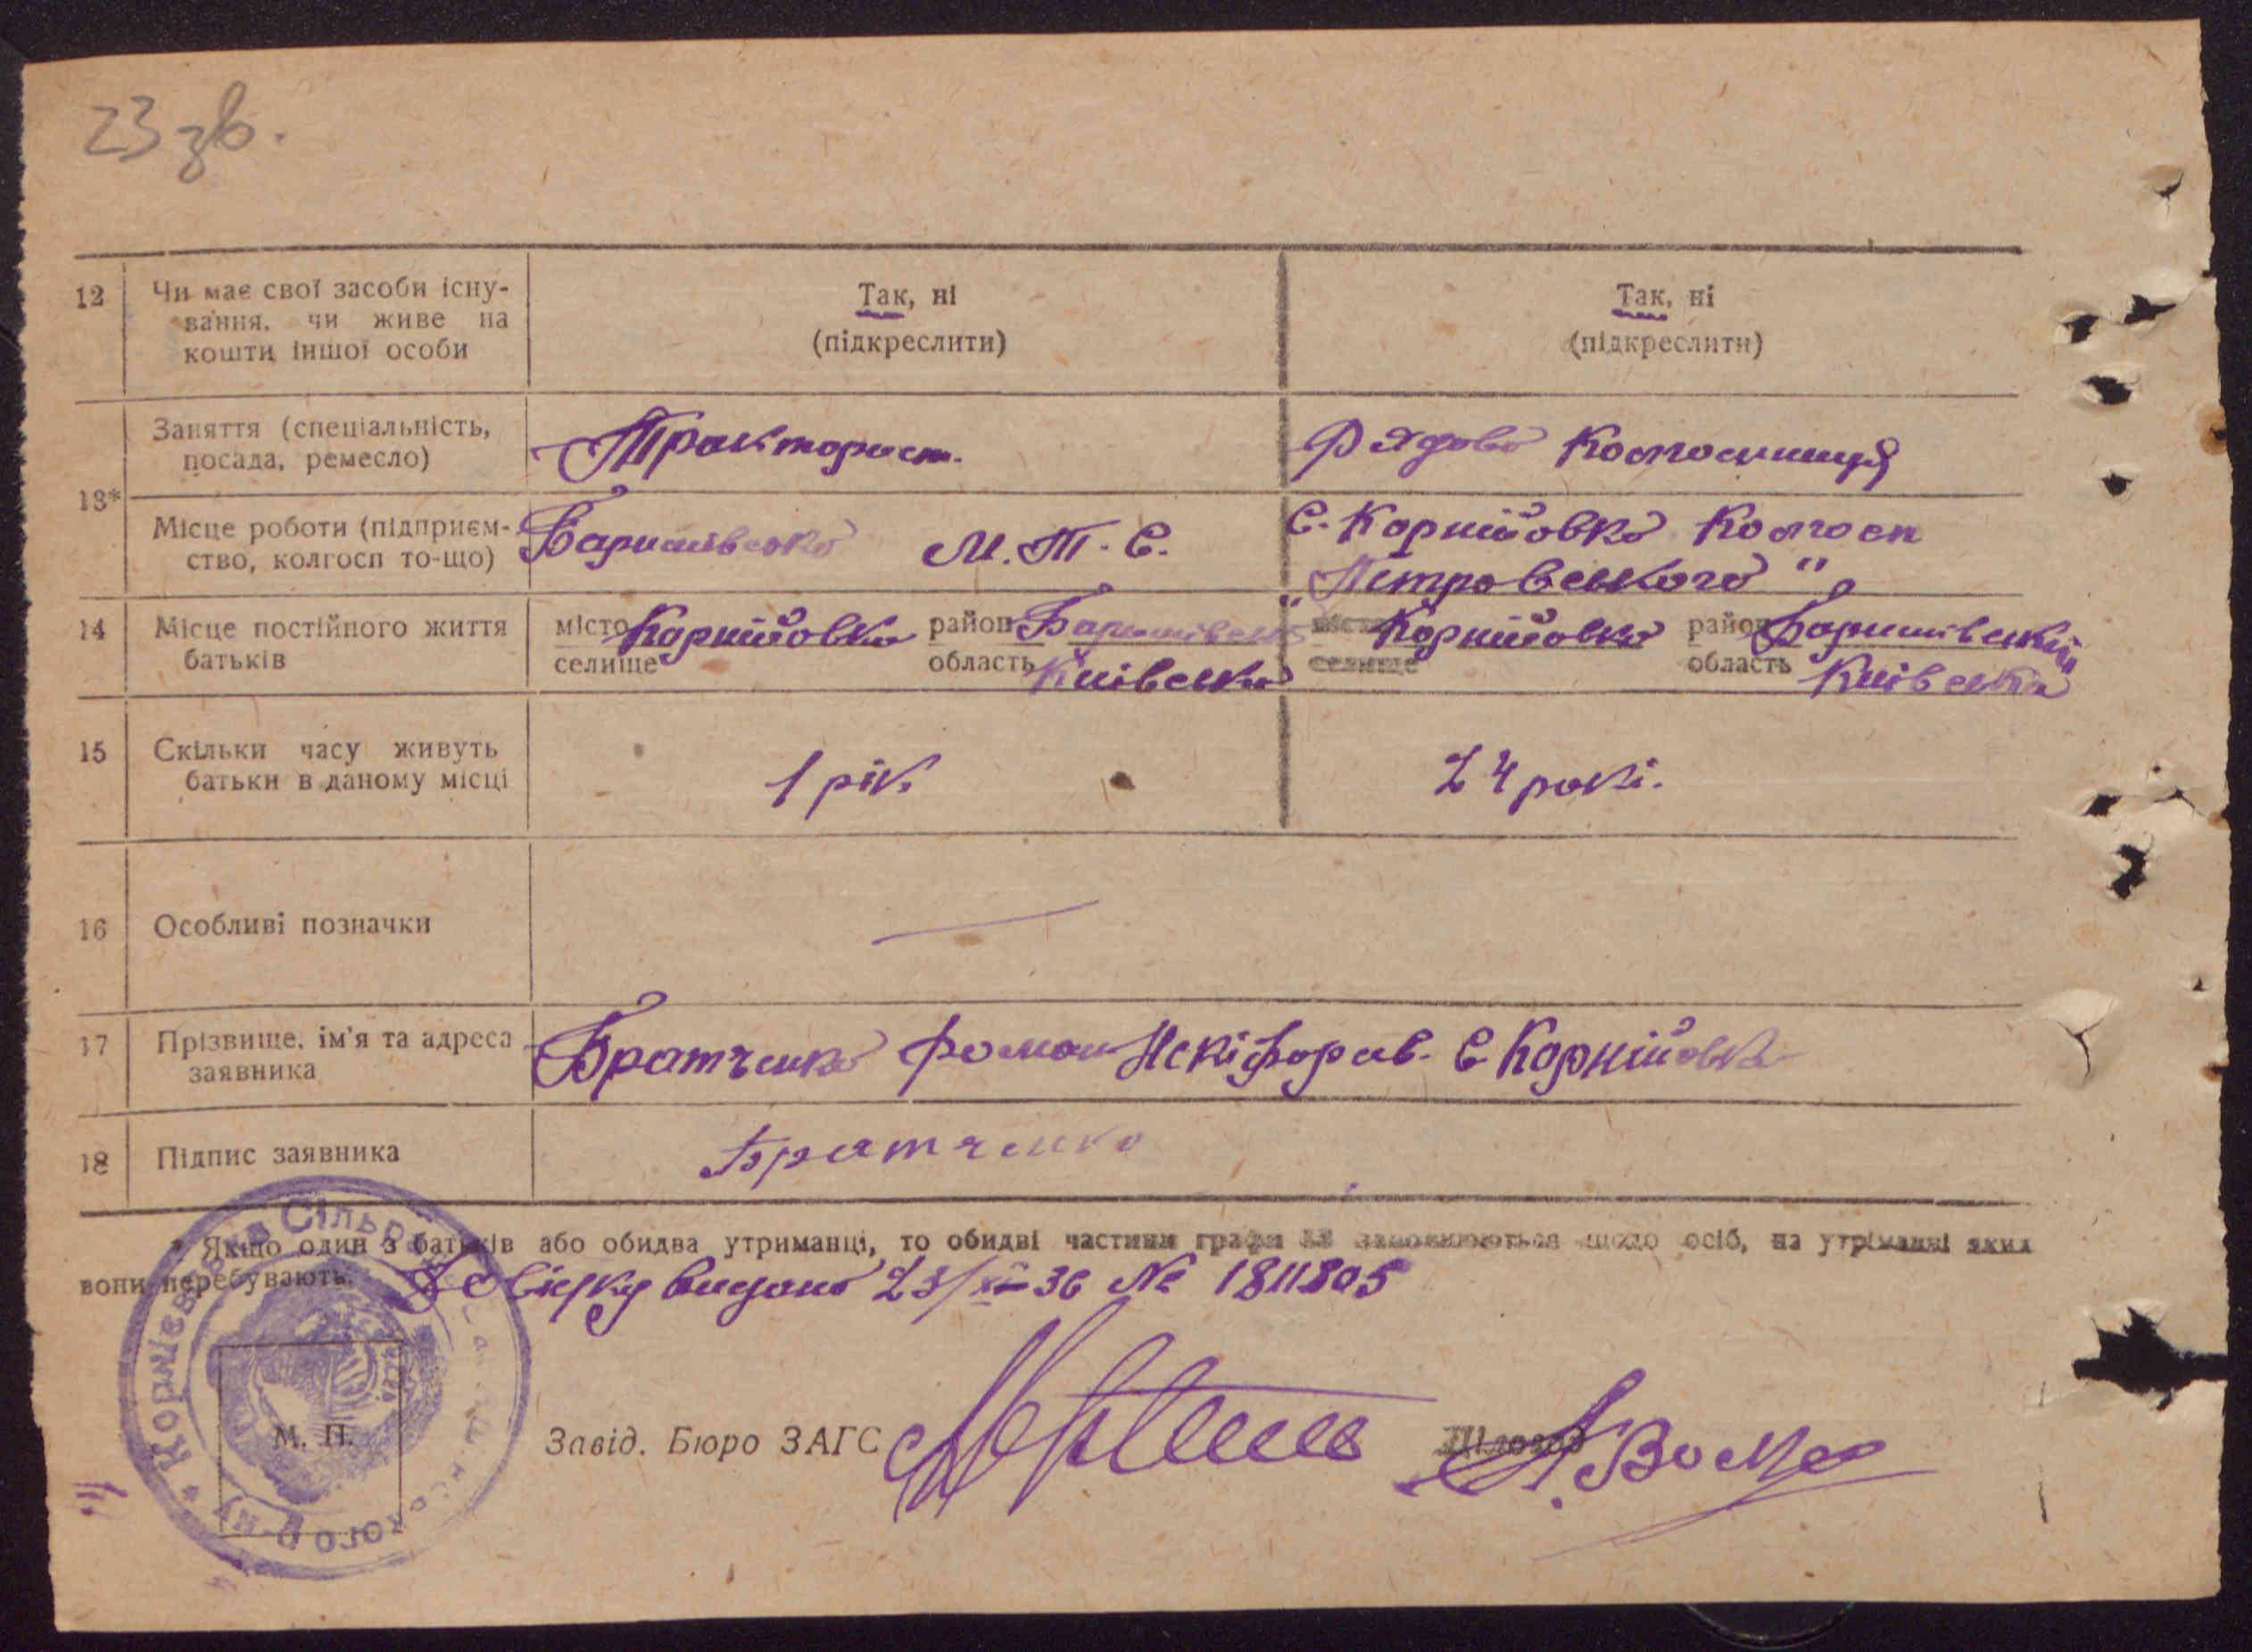 23 зв.
12 Чи має свої засоби існу-
вання, чи живе на
кошти іншої особи
Так, ні
(підкреслити)
Так, ні
(підкреслити)
13*
Заняття (спеціальність,
посада, ремесло)
Тракторист.
Рядова Колгоспниця
Місце роботи (підприєм-
ство, колгосп то-що)
Баришівська М.Т.С.
С. Корнійовка Колгосп
"Петровського"
14 Місце постійного життя
батьків
місто Корнійовка район Баришівськ
селище область Київська
місто Корнійовка район Баришівський
селище область Київська
15 Скільки часу живуть
батьки в даному місці
1 рік.
24 рокі.
16 Особливі позначки
—
17 Прізвище, ім'я та адреса
заявника
Братченко Роман Некіфоров. С Корнійовка
18 Підпис заявника
Братченко
* Якщо один з батьків або обидва утриманці, то обидві частини графи заповнюються щодо осіб, на утриманні яких
вони перебувають.
Довідку видано 23/XII-36 № 1811805
М. П.
Завід. Бюро ЗАГС
Діловод
Сільр